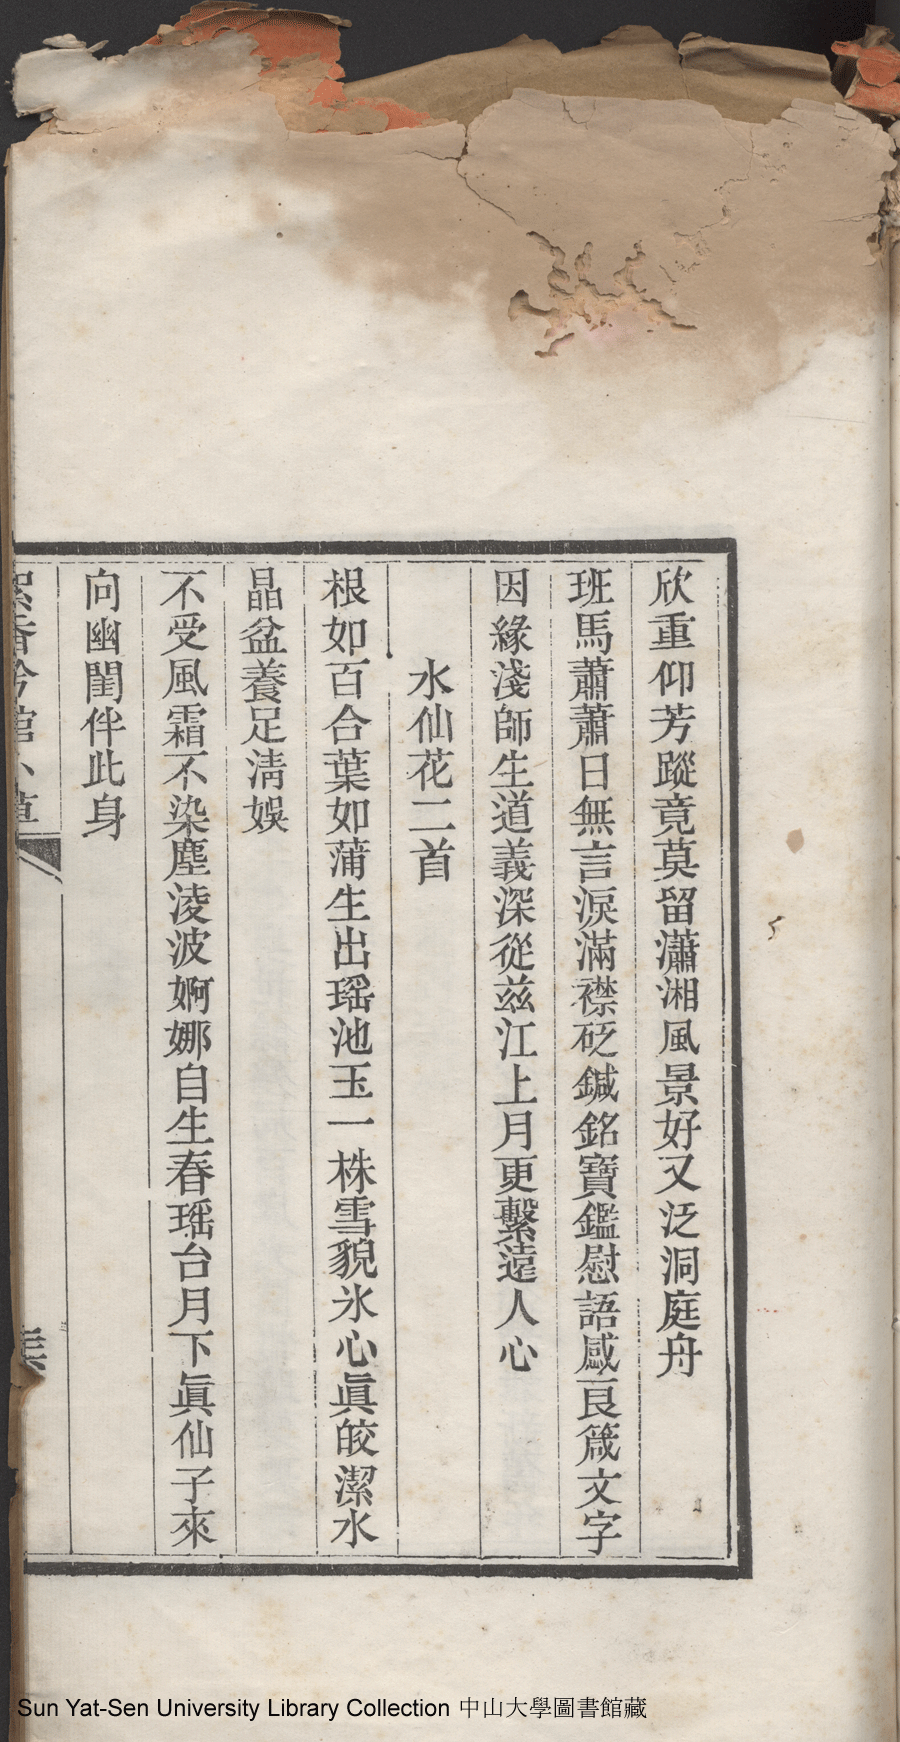 欣重仰芳蹤竟莫留瀟湘風景好又泛洞庭舟
班馬蕭蕭日無言淚滿襟砭鍼銘寶鑑慰語感良箴文字
因緣淺師生道義深從茲江上月更繫遠人心
水仙花二首
根如百合葉如蒲生出瑶池玉一株雪貌氷心眞皎潔水
晶盆養足淸娛
不受風霜不染塵淩波婀娜自生春瑶台月下眞仙子來
向幽閨伴此身
絮香吟館小草
Sun Yat-Sen University Library Collection 中山大學圖書館藏